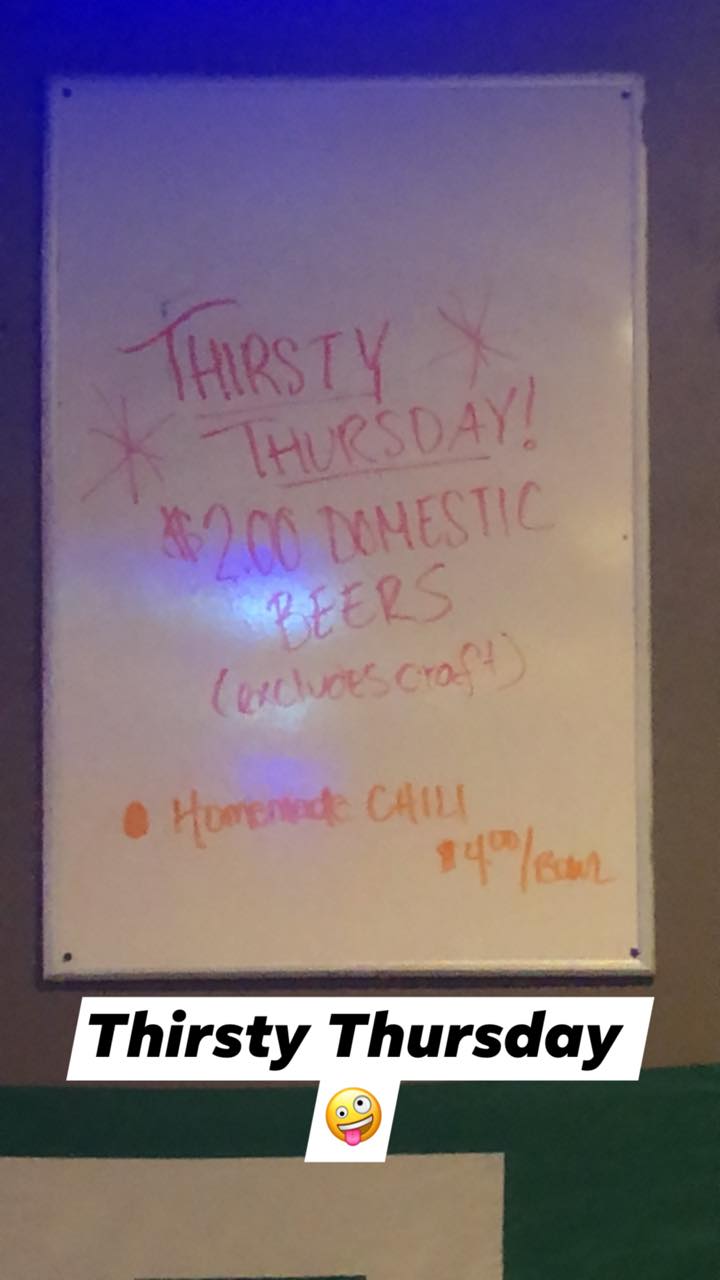 THIRSTY
THURSDAY!
$2.00 DOMESTIC
BEERS
(excludes craft)
Homemade CHILI
$4.00/BOWL
Thirsty Thursday
🤪